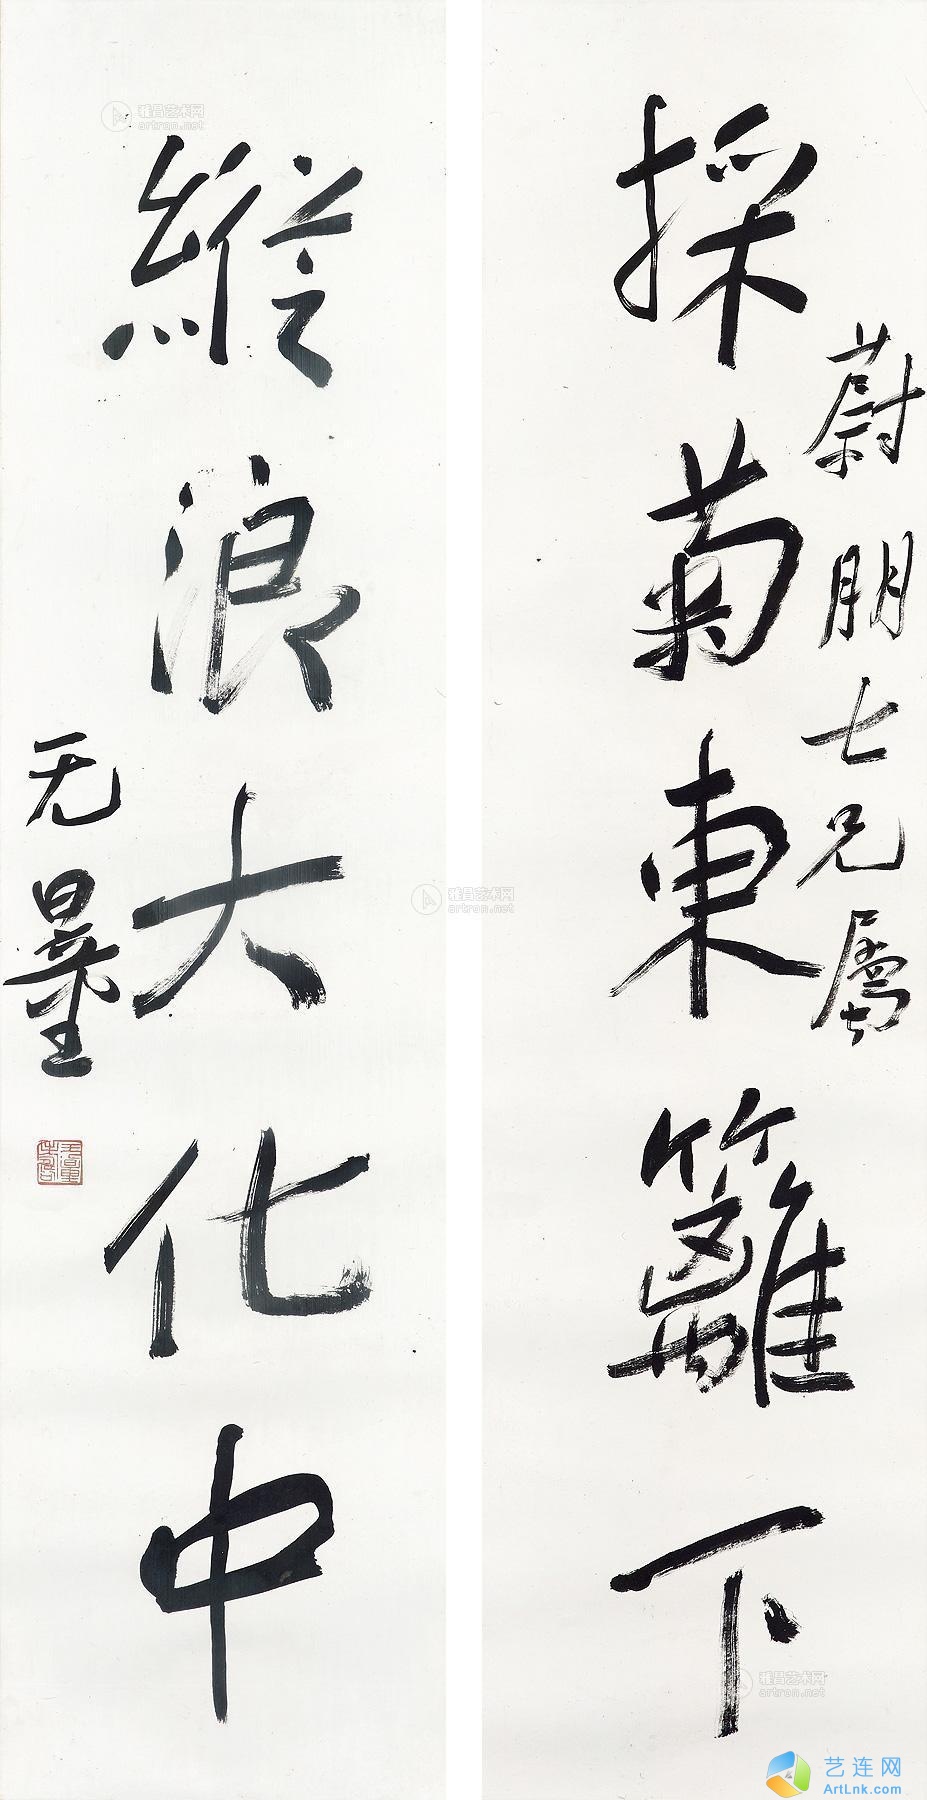 採菊東籬下
蔚朋七兄屬
縱浪大化中
无量
雅昌艺术网
artron.net
雅昌艺术网
artron.net
雅昌艺术网
artron.net
艺连网
ArtLnk.com